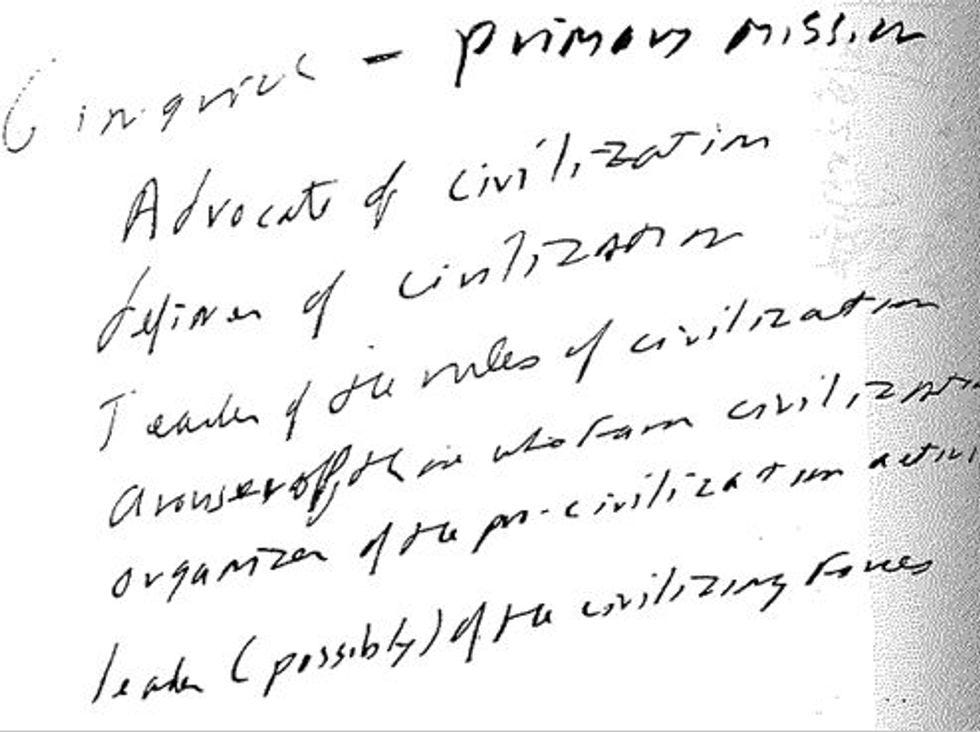 Gingrich - primary mission
Advocate of civilization
definer of civilization
Teacher of the rules of civilization
arouser of those who form civilization
organizer of the pro-civilization activi
leader (possibly) of the civilizing forces